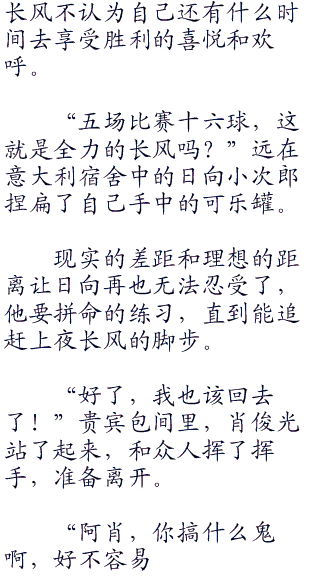 长风不认为自己还有什么时
间去享受胜利的喜悦和欢
呼。
“五场比赛十六球，这
就是全力的长风吗？”远在
意大利宿舍中的日向小次郎
捏扁了自己手中的可乐罐。
现实的差距和理想的距
离让日向再也无法忍受了，
他要拼命的练习，直到能追
赶上夜长风的脚步。
“好了，我也该回去
了！”贵宾包间里，肖俊光
站了起来，和众人挥了挥
手，准备离开。
“阿肖，你搞什么鬼
啊，好不容易